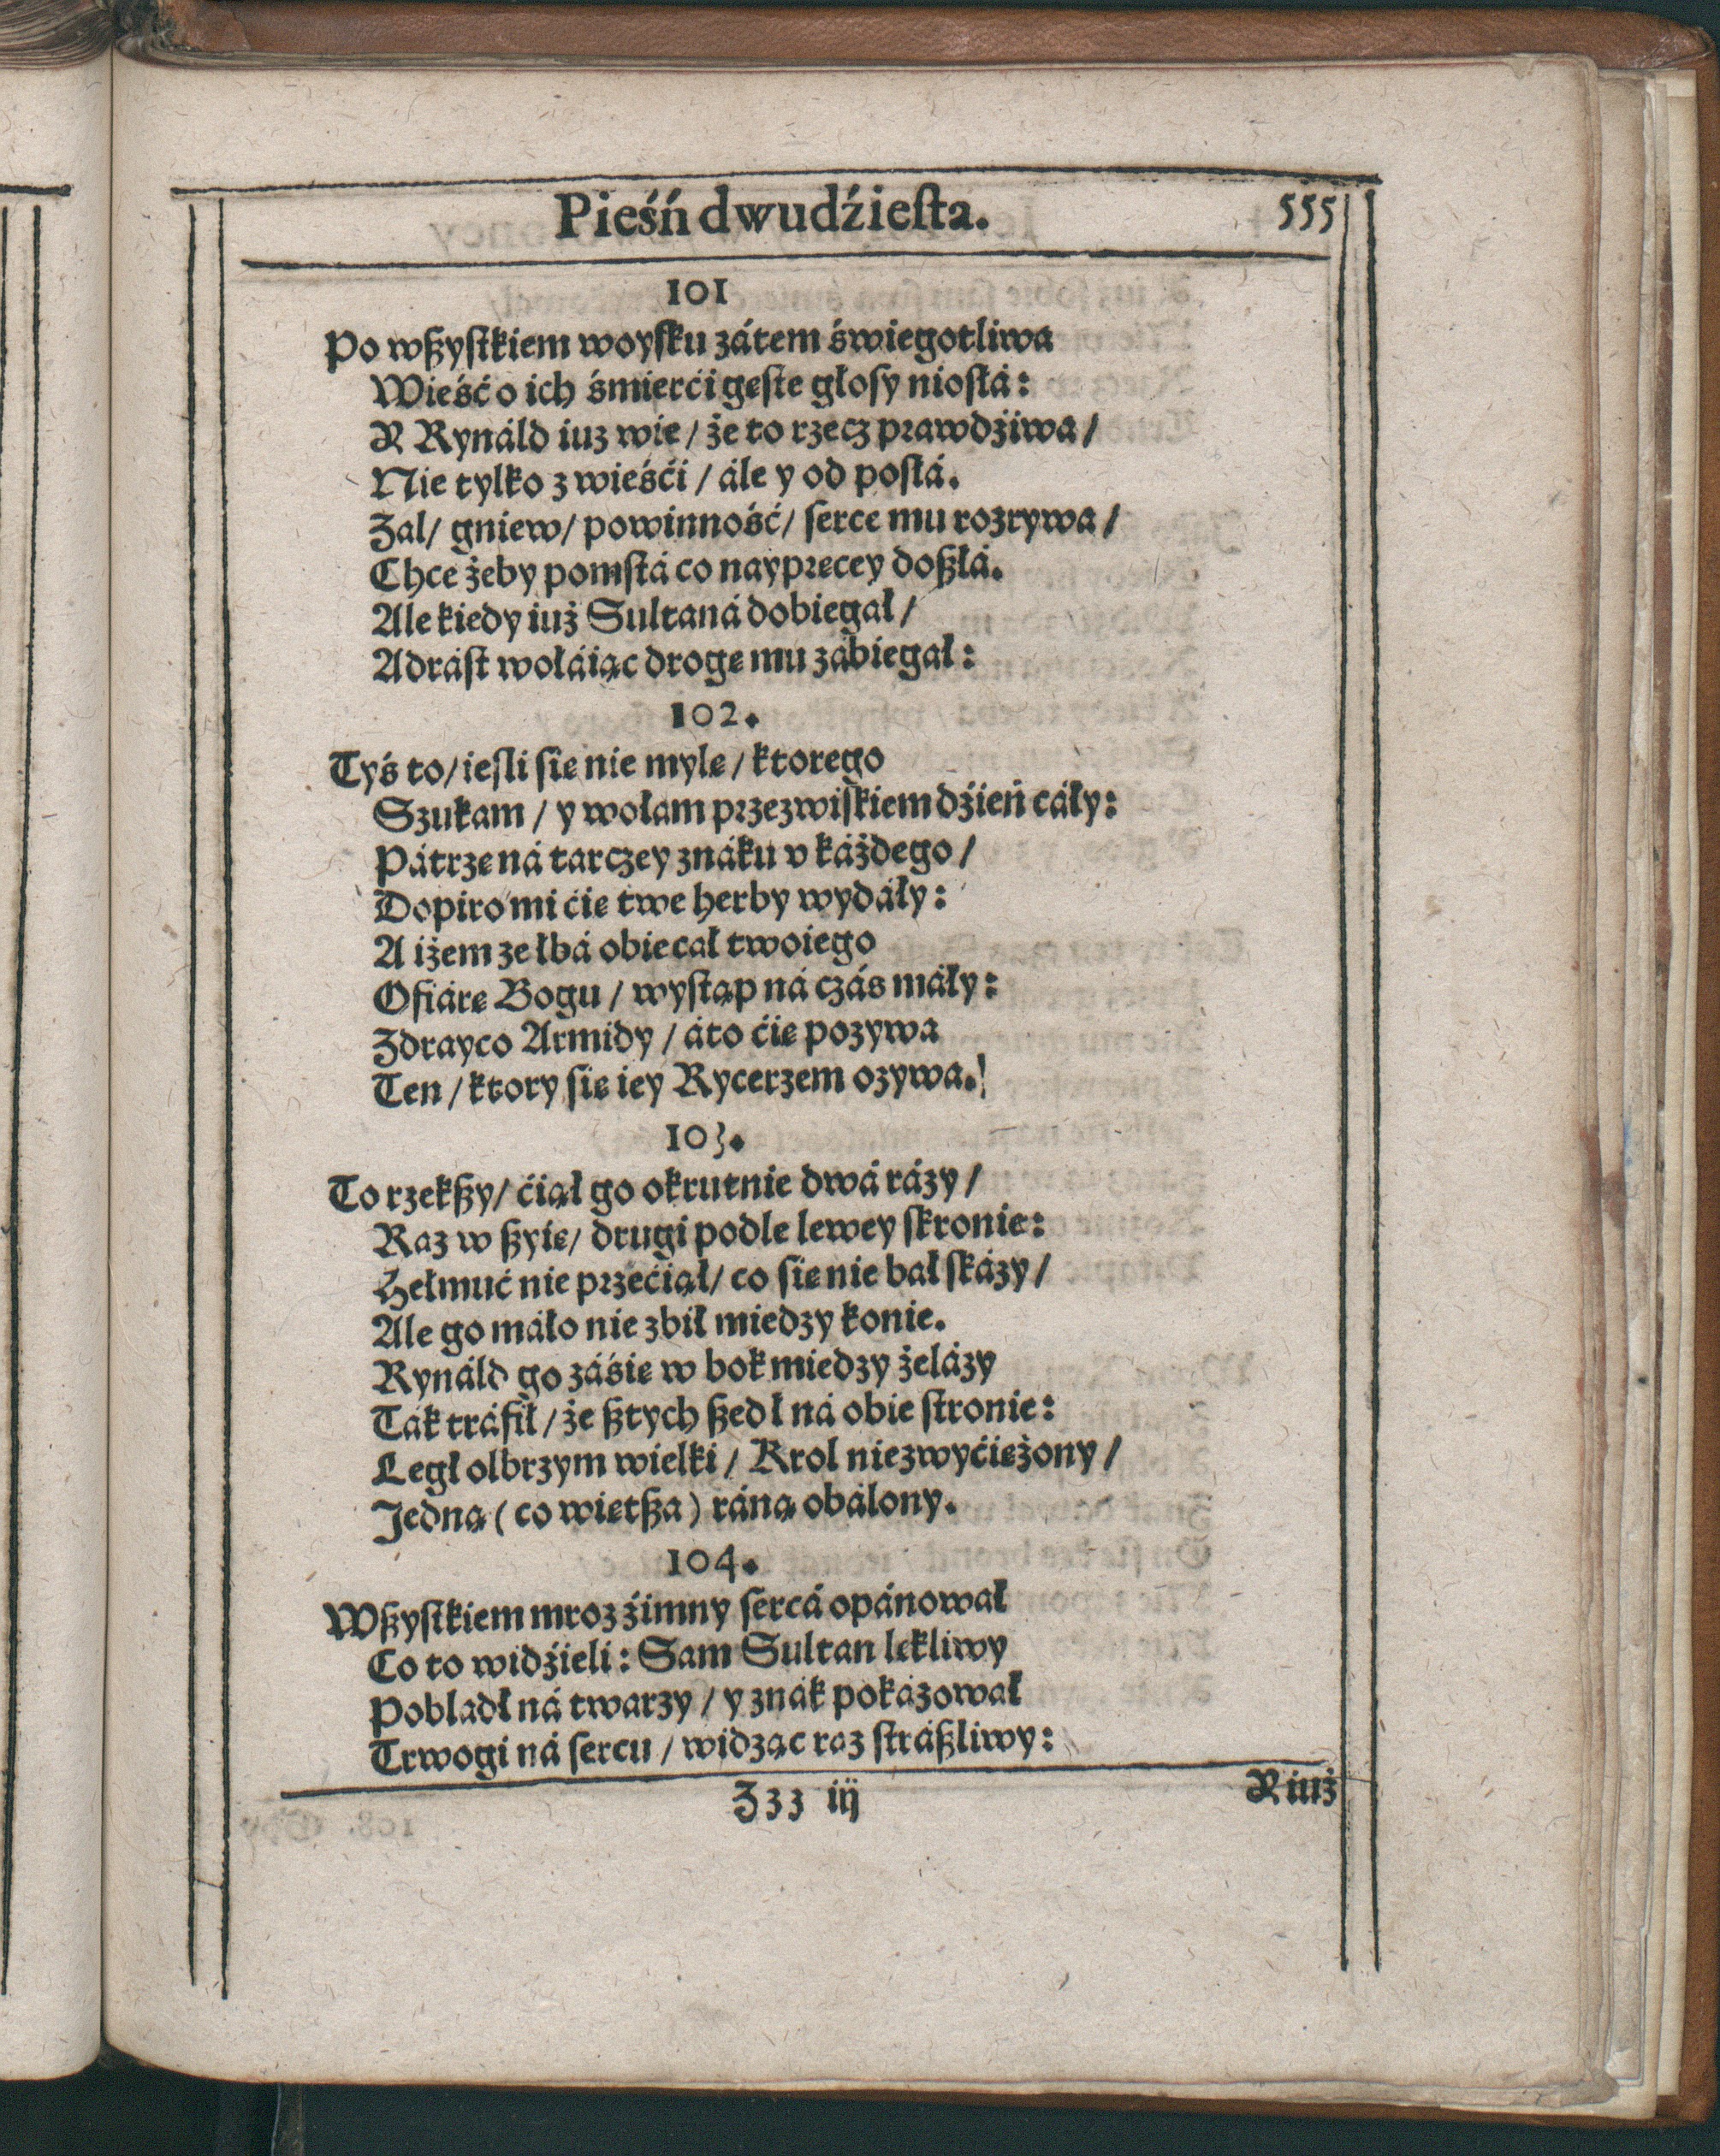 Pieśń dwudźieſta. 555
101
Po wßyſtkiem woyſku zátem świegotliwa
Wieść o ich śmierći gęſte głoſy nioſłá:
Y Rynáld iuż wie / że to rzecz prawdźiwa /
Nie tylko z wieśći / ále y od poſłá.
Zal / gniew / powinność / ſerce mu rozrywa /
Chce żeby pomſtá co naypręcey doßłá.
Ale kiedy iuż Sultaná dobiegał /
Adráſt wołáiąc drogę mu zábiegał:
102.
Tyś to / ieſli ſię nie mylę / ktorego
Szukam / y wołam przezwiſkiem dźień cáły:
Pátrzę ná tarczey znáku v káżdego /
Dopiro mi ćię twe herby wydáły:
A iżem ze łbá obiecał twoiego
Ofiárę Bogu / wyſtąp ná czás máły:
Zdrayco Armidy / áto ćię pozywa
Ten / ktory ſię iey Rycerzem ozywa.
103.
To rzekßy / ćiął go okrutnie dwá rázy /
Raz w ßyię / drugi podle lewey ſkronie:
Hełmuć nie przećiął / co ſię nie bał ſkázy /
Ale go máło nie zbił miedzy konie.
Rynáld go záśię w bok miedzy żelázy
Ták tráfił / że ßtych ßedł ná obie ſtronie:
Legł olbrzym wielki / Krol niezwyćiężony /
Jedną (co więtßa) ráną obálony.
104.
Wßyſtkiem mroz źimny ſercá opánował
Co to widźieli: Sam Sultan lękliwy
Pobladł ná twarzy / y znák pokázował
Trwogi ná ſercu / widząc raz ſtráßliwy:
Zzz iij Y iuż